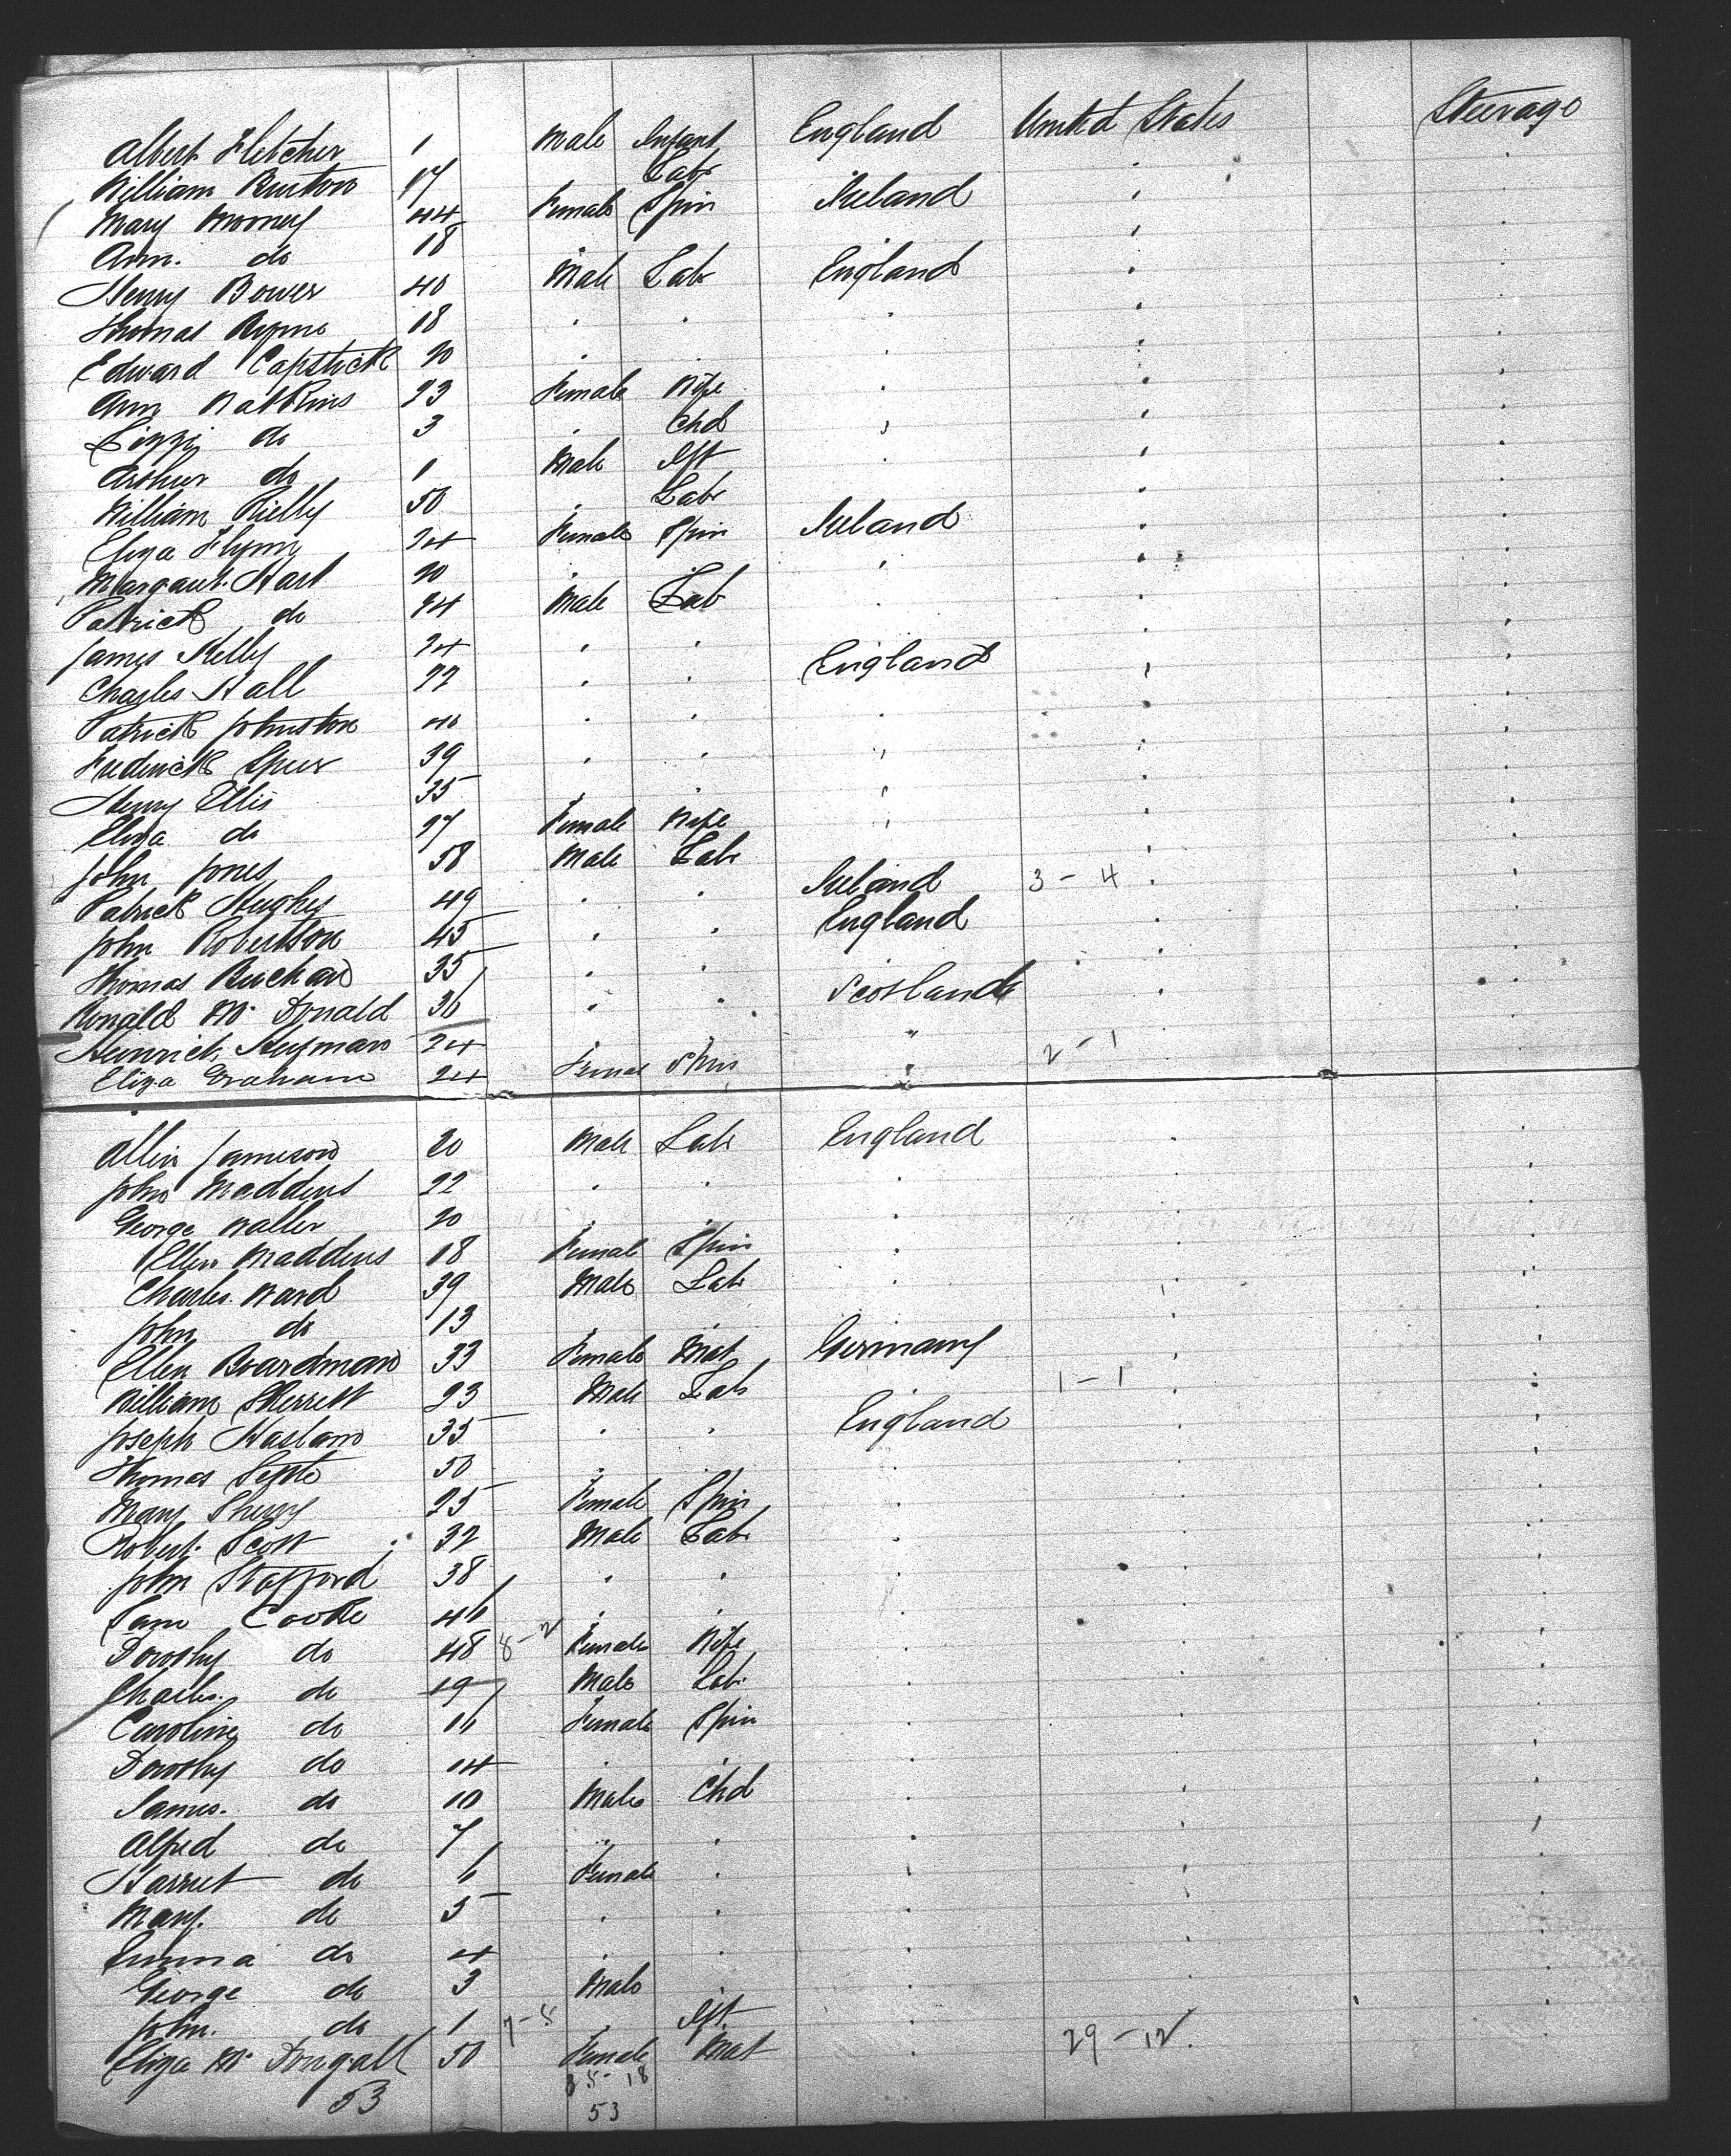 Albert Fletcher 1 Male Infant England United States Steerage
William Burton 17 " Labr " " "
Mary Mooney 44 Female Spin Ireland " "
Ann. do 18 " " " " "
Henry Bower 40 Male Labr England " "
Thomas Byrne 18 " " " " "
Edward Capstick 20 " " " " "
Ann Watkins 23 Female Wife " " "
Lizzy do 3 " Chd " " "
Arthur do 1 Male Ift " " "
William Rielly 50 " Labr " " "
Eliza Flynn 24 Female Spin Ireland " "
Margaret Hart 20 " " " " "
Patrick do 24 Male Lab " " "
James Kelly 24 " " " " "
Charles Hall 22 " " England " "
Patrick Johnston 40 " " " " "
Frederick Speer 39 " " " " "
Henry Ellis 35 " " " " "
Eliza do 27 Female Wife " " "
John Jones 58 Male Labr " " "
Patrick Hughes 49 " " Ireland 3-4 " "
John Robertson 45 " " England " "
Thomas Buchan 35 " " " " "
Ronald Mc Donald 36 " " Scotland " "
Heinrich Heyman 24 " " " 2-1
Eliza Graham 24 Female Spin "
Allen Jameson 20 Male Labr England " "
John Maddens 22 " " " " "
George Waller 20 " " " " "
Ellen Maddens 18 Female Spin " " "
Charles Ward 39 Male Lab " " "
John do 13 " " " " "
Ellen Boardman 33 Female Mat Germany " "
William Skerrett 23 Male Lab " 1-1 " "
Joseph Haslam 35 " " England " "
Thomas 50 " " " " "
Mary Sherry 25 Female Spin " " "
Robert Scott 32 Male Labr " " "
John Stafford 38 " " " " "
Sam Cooke 46 " " " " "
Dorothy do 48 8-2 Female Wife " " "
Charles. do 19 Male Lab. " " "
Caroline do 16 Female Spin " " "
Dorothy do 14 " " " " "
James. do 10 Male Chd " " "
Alfred do 7 " " " " "
Harriet do 6 Female " " " "
Mary. do 5 " " " " "
Emma do 4 " " " " "
George do 3 Male " " " "
John. do 1 7-5 " Ift " " "
Eliza Mc Dougall 50 Female Mat " 29-12 "
53 35-18
53